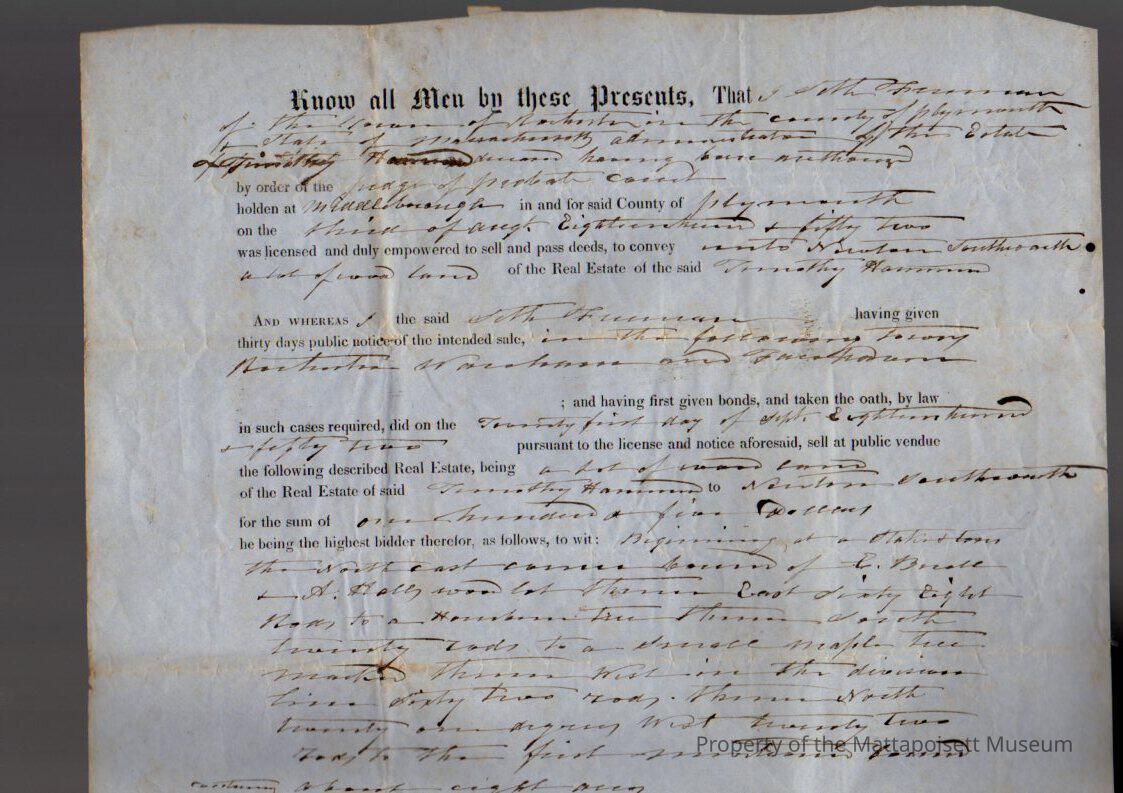 Know all Men by these Presents, That I Seth Freeman
of the Town of Rochester in the county of Plymouth
& State of Massachusetts administrator of the Estate
of Timothy Hammond deceased having been authorized
by order of the judge of probate court
holden at Middleborough in and for said County of Plymouth
on the third of Augt. Eighteen hund & fifty two
was licensed and duly empowered to sell and pass deeds, to convey unto Newton Southworth
a lot of wood land of the Real Estate of the said Timothy Hammond
AND WHEREAS I the said Seth Freeman having given
thirty days public notice of the intended sale, in the following towns
Rochester Wareham and Fairhaven
; and having first given bonds, and taken the oath, by law
in such cases required, did on the Twenty first day of Sept. Eighteen hund
& fifty two pursuant to the license and notice aforesaid, sell at public vendue
the following described Real Estate, being a lot of wood land
of the Real Estate of said Timothy Hammond to Newton Southworth
for the sum of one hundred & five Dollars
he being the highest bidder therefor, as follows, to wit: Beginning at a Stake & stones
the North east corner bound of E.
& A. Halls wood lot thence East sixty Eight
Rods to a tree thence South
twenty rods to a small maple tree
marked thence West in the division
line sixty two rods. thence North
twenty one degrees West twenty two
rods to the first mentioned bound
containing about eight acres
Property of the Mattapoisett Museum